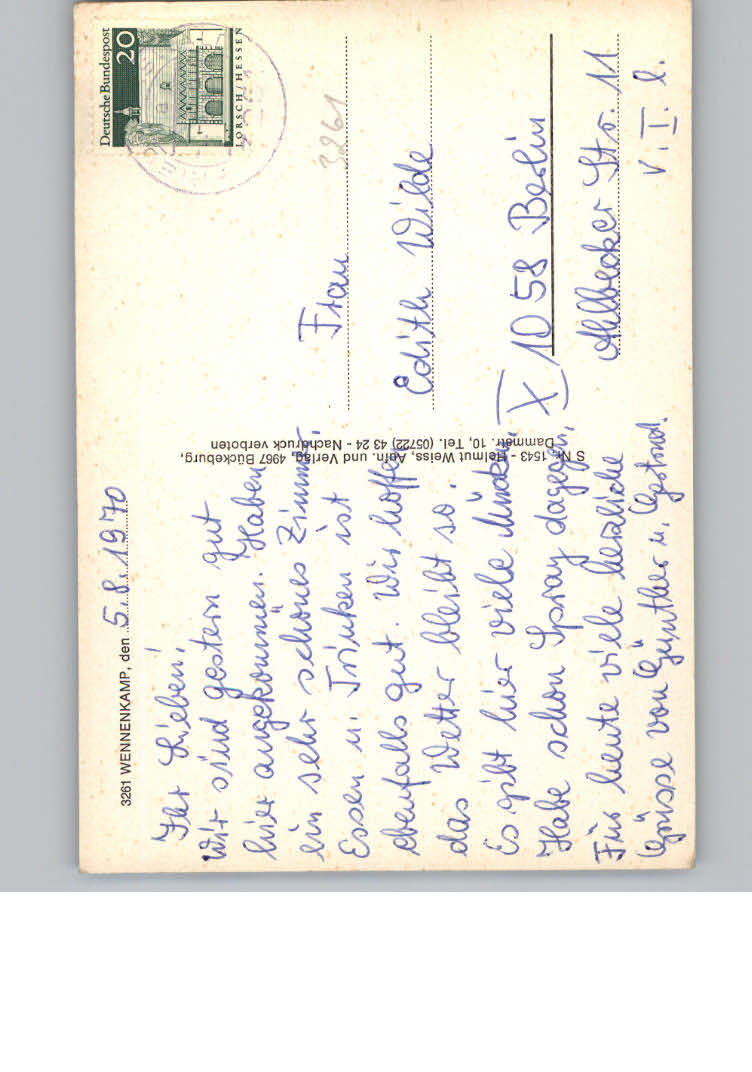 3261 WENNENKAMP, den 5.8.1970
Ihr Lieben!
Wir sind gestern gut
hier angekommen. Haben
ein sehr schönes Zimmer.
Essen u. Trinken ist
ebenfalls gut. Wir hoffen
das Wetter bleibt so.
Es gibt hier viele Mücken.
Habe schon Spray dagegen.
Für heute viele herzliche
Grüsse von Günther u.
S Nr. 1543 - Helmut Weiss, Aufn. und Verlag, 4967 Bückeburg,
Dammstr. 10, Tel. (05722) 43 24 - Nachdruck verboten
Deutsche Bundespost
20
LORSCH/HESSEN
3261
Frau
Edith Wilde
X 1058 Berlin
Ahlbecker Str. 11
v. I. l.